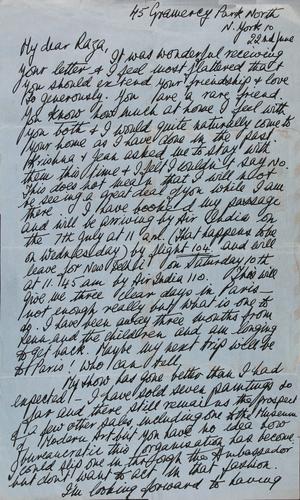 45 Gramercy Park North
N. York 10
22nd June
My dear Raza,
It was wonderful receiving
your letter & I feel most flattered that
you should extend your friendship & love
so generously. You are a rare friend.
You know how much at home I feel with
you both & I would quite naturally come to
your home as I have done in the past
Krishna & Jean asked me to stay with
them this time & I felt I couldn't say No.
This does not mean that I will not
be seeing a great deal of you while I am
there. I have booked my passage
and will be arriving by Air India on
the 7th July at 11 am. (that happens to be
on Wednesday) by flight 104 and will
leave for New Delhi on Saturday 10th
at 11.45 am by Air India 110. This will
give me three clear days in Paris—
not enough really but what is one to
do. I have been away three months from
Renu and the children and am longing
to get back. Maybe my next trip will be
to Paris! who can tell.
My show has gone better than I had
expected! — I have sold seven paintings so
far and there still remains the prospect
of a few other sales, including one to the Museum
of Modern Art but you have no idea how
bureaucratic this organisation has become—
I could slip one in through the Ambassador
but dont want to act in that fashion.
I'm looking forward to having